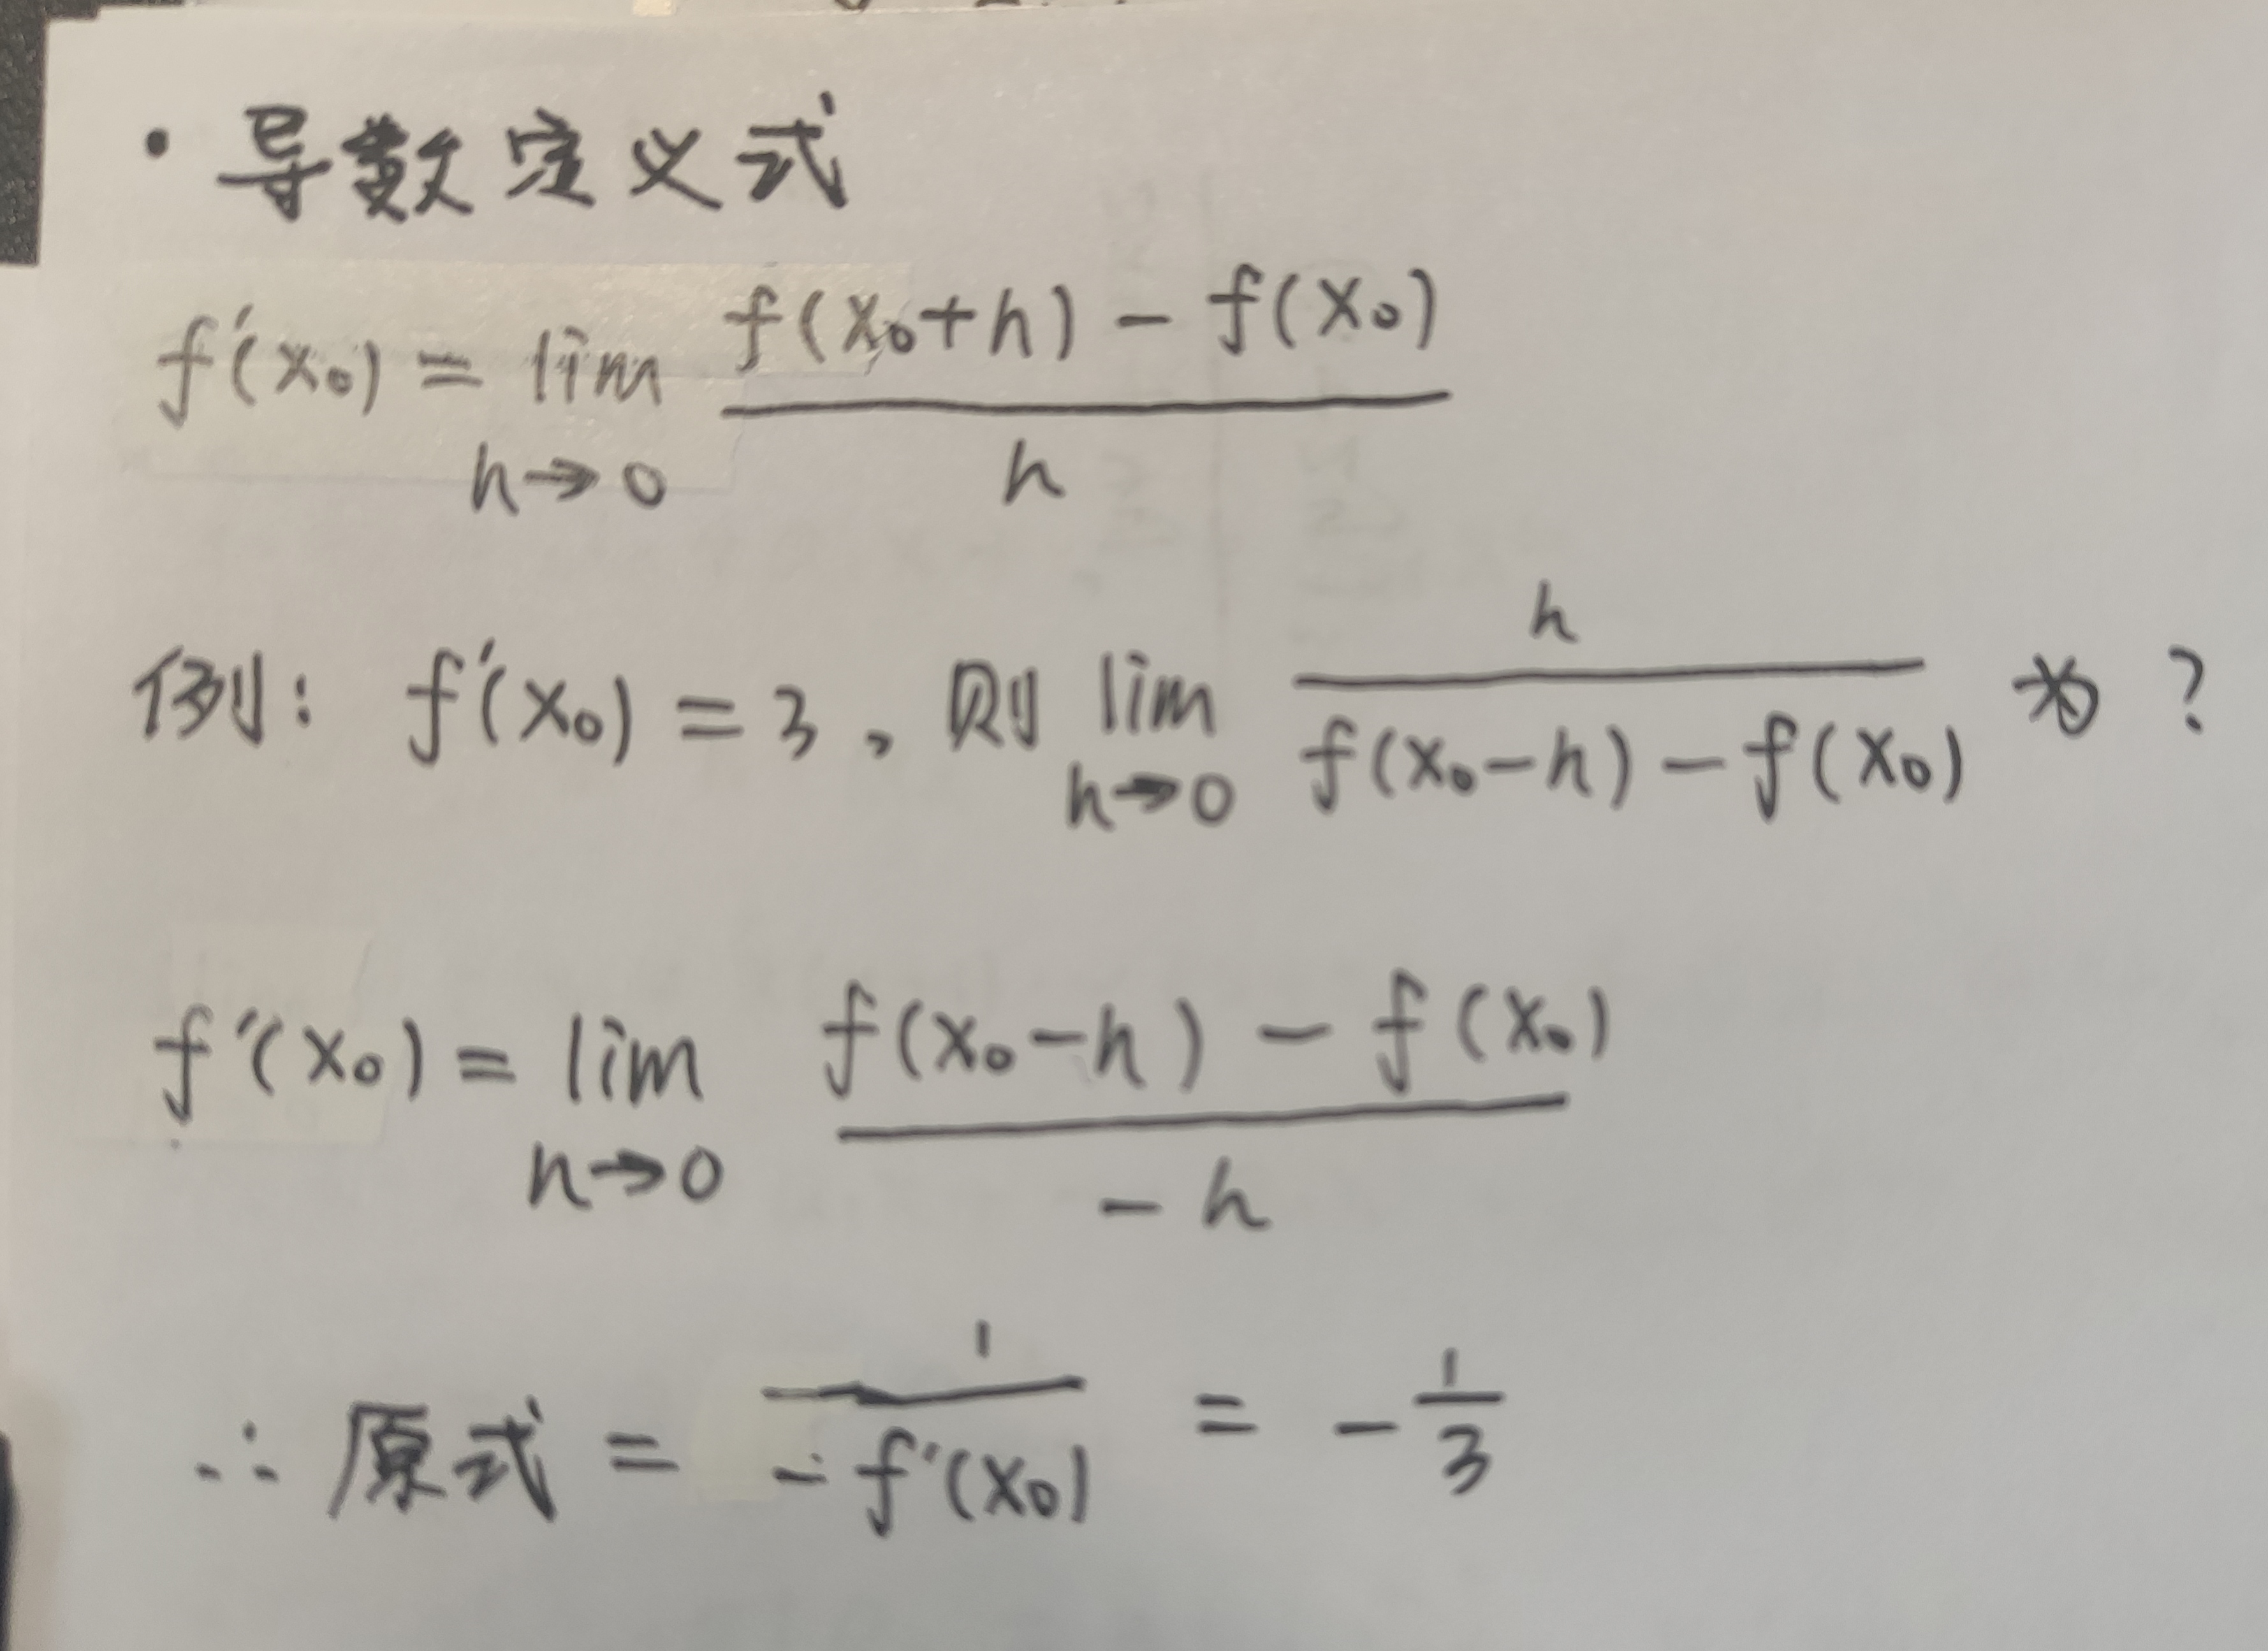 · 导数定义式
f'(x₀) = lim_{h→0} \frac{f(x₀+h) - f(x₀)}{h}
例: f'(x₀) = 3, 则 lim_{h→0} \frac{h}{f(x₀-h) - f(x₀)} 为 ?
f'(x₀) = lim_{h→0} \frac{f(x₀-h) - f(x₀)}{-h}
∴ 原式 = \frac{1}{-f'(x₀)} = -\frac{1}{3}